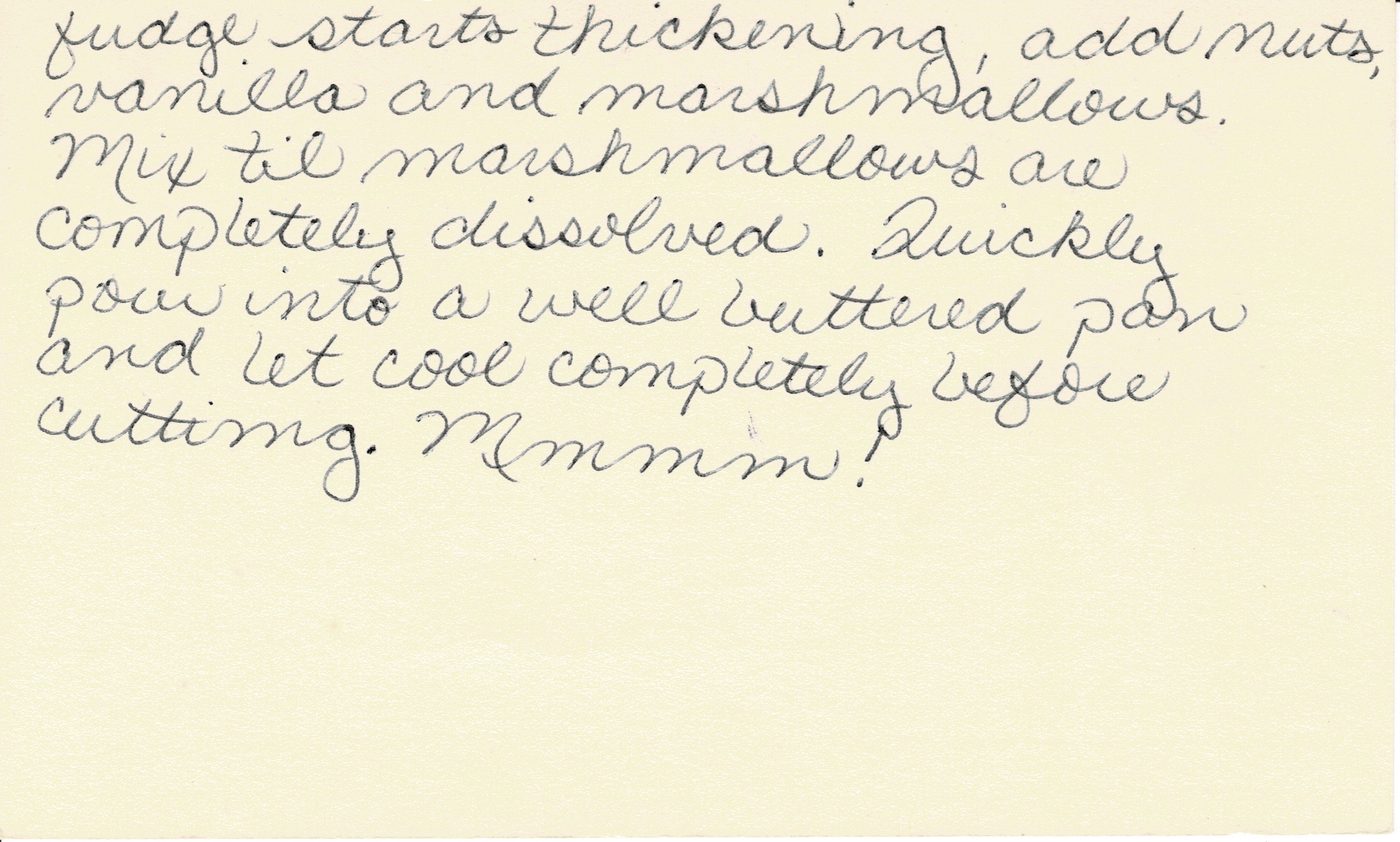 fudge starts thickening, add nuts,
vanilla and marshmallows.
Mix til marshmallows are
completely dissolved. Quickly
pour into a well buttered pan
and let cool completely before
cutting. Mmmmm!